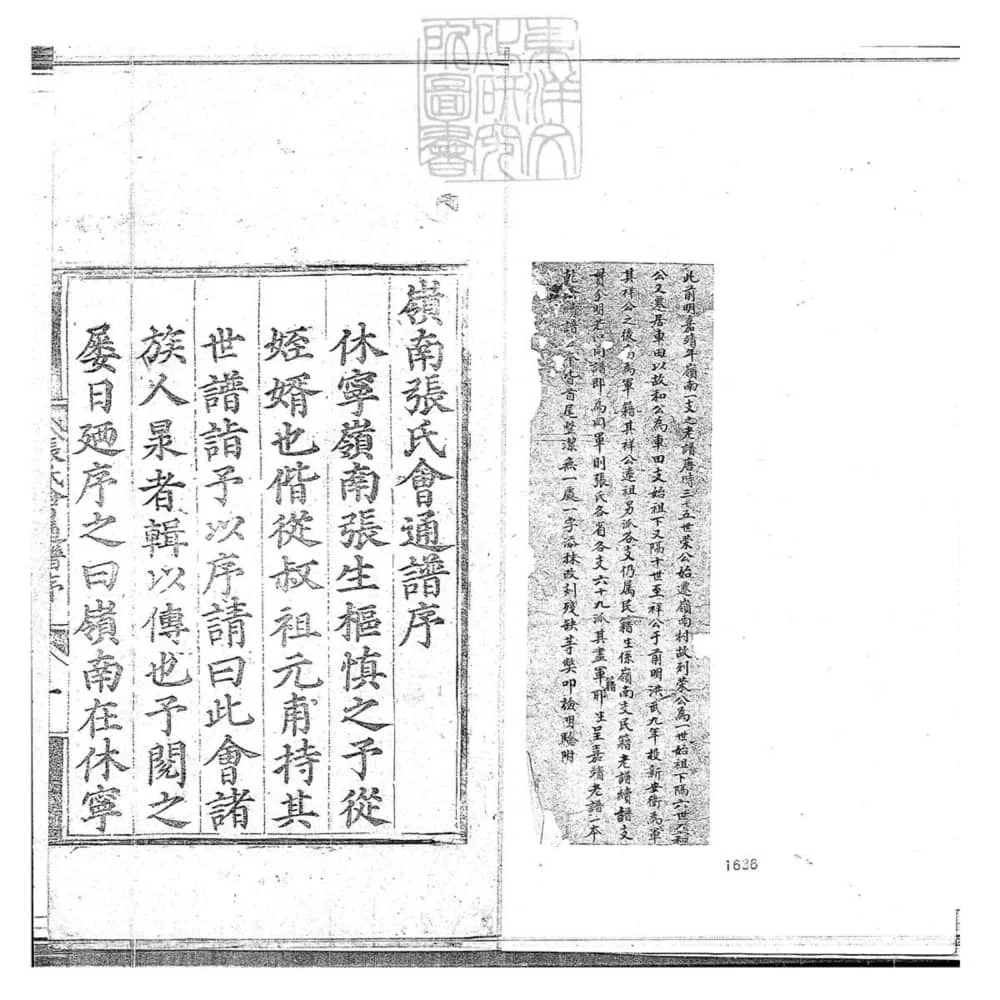 東洋文
化研究
所圖書
此前明嘉靖年嶺南一支之老譜唐時三十五世菜公始遷嶺南村故列菜公為一世始祖下隔六世六和
公又遷居車田以故和公為車田支始祖下又隔十世至祥公于前明洪武九年投新安衛為軍
其祥公之後為軍籍其祥公遠祖另派各支仍属民籍生係嶺南支民籍老譜續譜支
貫分明若向譜即為軍則張氏各省各支六十九派其盡軍籍耶生呈嘉靖老譜一本
譜一本皆首尾整潔無一處一字添抹改刻殘缺等弊叩檢明驗附
1636
嶺南張氏會通譜序
休寧嶺南張生樞慎之予從
姪婿也偕從叔祖元甫持其
世譜詣予以序請曰此會諸
族人杲者輯以傳也予閱之
屡日廼序之曰嶺南在休寧
張氏會通譜序
一